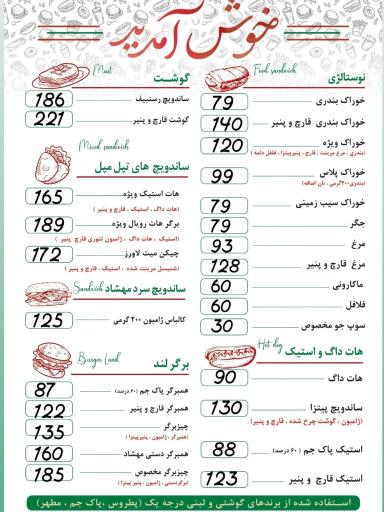 خوش آمدید
نوستالژی
Food sandwich
خوراک بندری 79
خوراک بندری قارچ و پنیر 140
خوراک ویژه 120
(بندری ، مرغ مرینت ، قارچ ، پنیرپیتزا ، فلفل دلمه)
خوراک پلاس 99
(بندری ۲۰۰گرمی ، نان اضافه)
خوراک سیب زمینی 79
جگر 79
مرغ 93
مرغ قارچ و پنیر 128
ماکارونی 60
فلافل 60
سوپ جو مخصوص 30
Hot dog
هات داگ و استیک
هات داگ 90
ساندویچ پیتزا 130
(ژامبون ، گوشت چرخ شده ، قارچ و پنیر)
استیک پاک جم (۶۰ درصد) 88
استیک قارچ و پنیر 123
Meat
گوشت
ساندویچ رستبیف 186
گوشت قارچ و پنیر 221
Mixed sandwich
ساندویچ های تپل مپل
هات استیک ویژه 165
(هات داگ ، استیک ، قارچ و پنیر)
برگر هات رویال ویژه 189
(استیک ، هات داگ ، ژامبون تنوری قارچ پنیر)
چیکن میت لاورز 172
(شنیسل مرینت شده ، استیک ، قارچ و پنیر)
Sandwich
ساندویچ سرد مهشاد
کالباس ژامبون ۲۰۰ گرمی 125
Burger Land
برگر لند
همبرگر پاک جم (۶۰ درصد) 87
همبرگر قارچ و پنیر 122
چیزبرگر 135
(همبرگر ، ژامبون ، پنیرپیتزا)
همبرگر دستی مهشاد 160
چیزبرگر مخصوص 185
(برگردستی ، ژامبون ، پنیر)
استفاده شده از برندهای گوشتی و لبنی درجه یک (پطروس ،پاک جم ، مطهر)